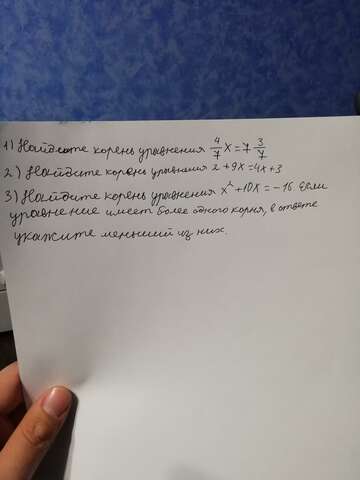 1) Найдите корень уравнения 4/7 x = 7 3/7
2) Найдите корень уравнения 2 + 9x = 4x + 3
3) Найдите корень уравнения x² + 10x = -16 Если
уравнение имеет более одного корня, в ответе
укажите меньший из них.